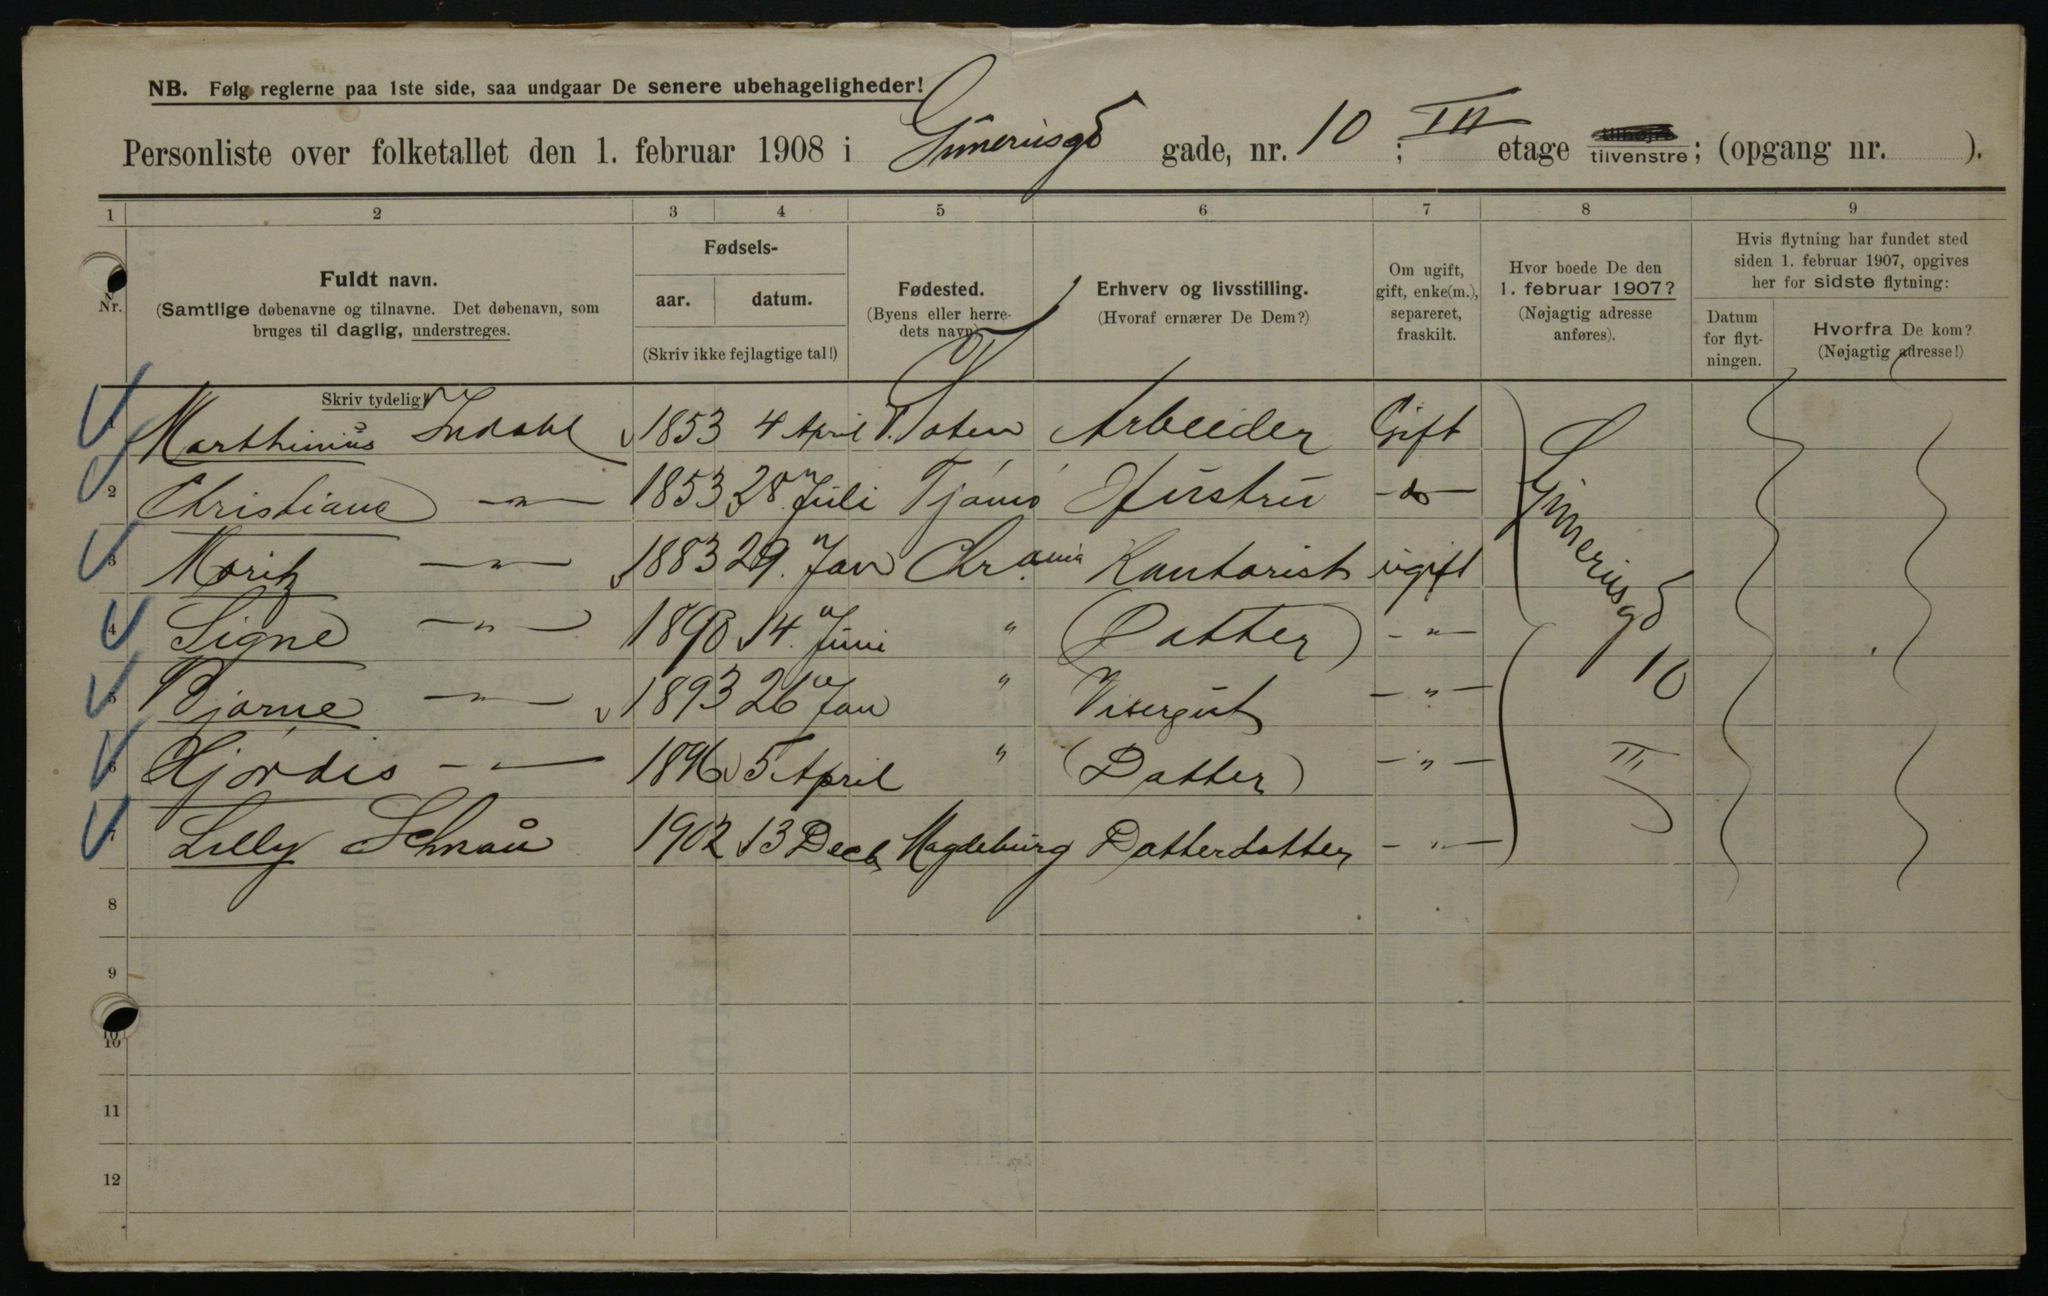 NB. Følg reglerne paa 1ste side, saa undgaar De senere ubehageligheder!
Personliste over folketallet den 1. februar 1908 i Gunerusgd gade, nr. 10 ; III etage tilhøjre tilvenstre; (opgang nr. ).
1 2 3 4 5 6 7 8 9
Nr. Fuldt navn. (Samtlige døbenavne og tilnavne. Det døbenavn, som bruges til daglig, understreges.
Fødsels- aar. datum. (Skriv ikke fejlagtige tal!)
Fødested. (Byens eller herredets navn).
Erhverv og livsstilling. (Hvoraf ernærer De Dem?)
Om ugift, gift, enke(m.), separeret, fraskilt.
Hvor boede De den 1. februar 1907? (Nøjagtig adresse anføres).
Hvis flytning har fundet sted siden 1. februar 1907, opgives her for sidste flytning:
Datum for flytningen. Hvorfra De kom? (Nøjagtig adresse!)
Skriv tydelig!
Marthinius Indahl 1853 4 April V. Toten Arbeider Gift
2 Christiane —"— 1853 28. Juli Tjømø Hustru —do—
3 Moritz —"— 1883 29. Jan Chr.ania Kontorist ugift
4 Signe —"— 1890 14. Juni " (Datter) —"—
5 Bjarne —"— 1893 26 Jan " Visergut —"—
6 Hjørdis —"— 1896 5 April " (Datter) —"—
7 Lilly Schnau 1902 13 Decb Magdeburg Datterdatter —"—
Gunerusgd 10 III
8
9
10
10
11
12